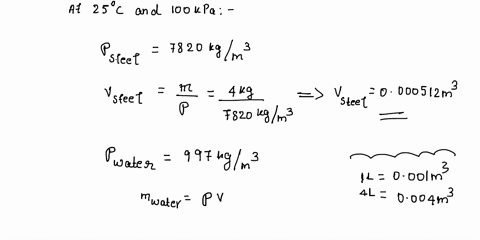 At 25°C and 100kPa:-
ρsteel = 7820 kg/m³
Vsteel = m/ρ = 4kg/7820 kg/m³ => Vsteel = 0.000512m³
ρwater = 997 kg/m³
mwater = ρV
1L = 0.001m³
4L = 0.004m³